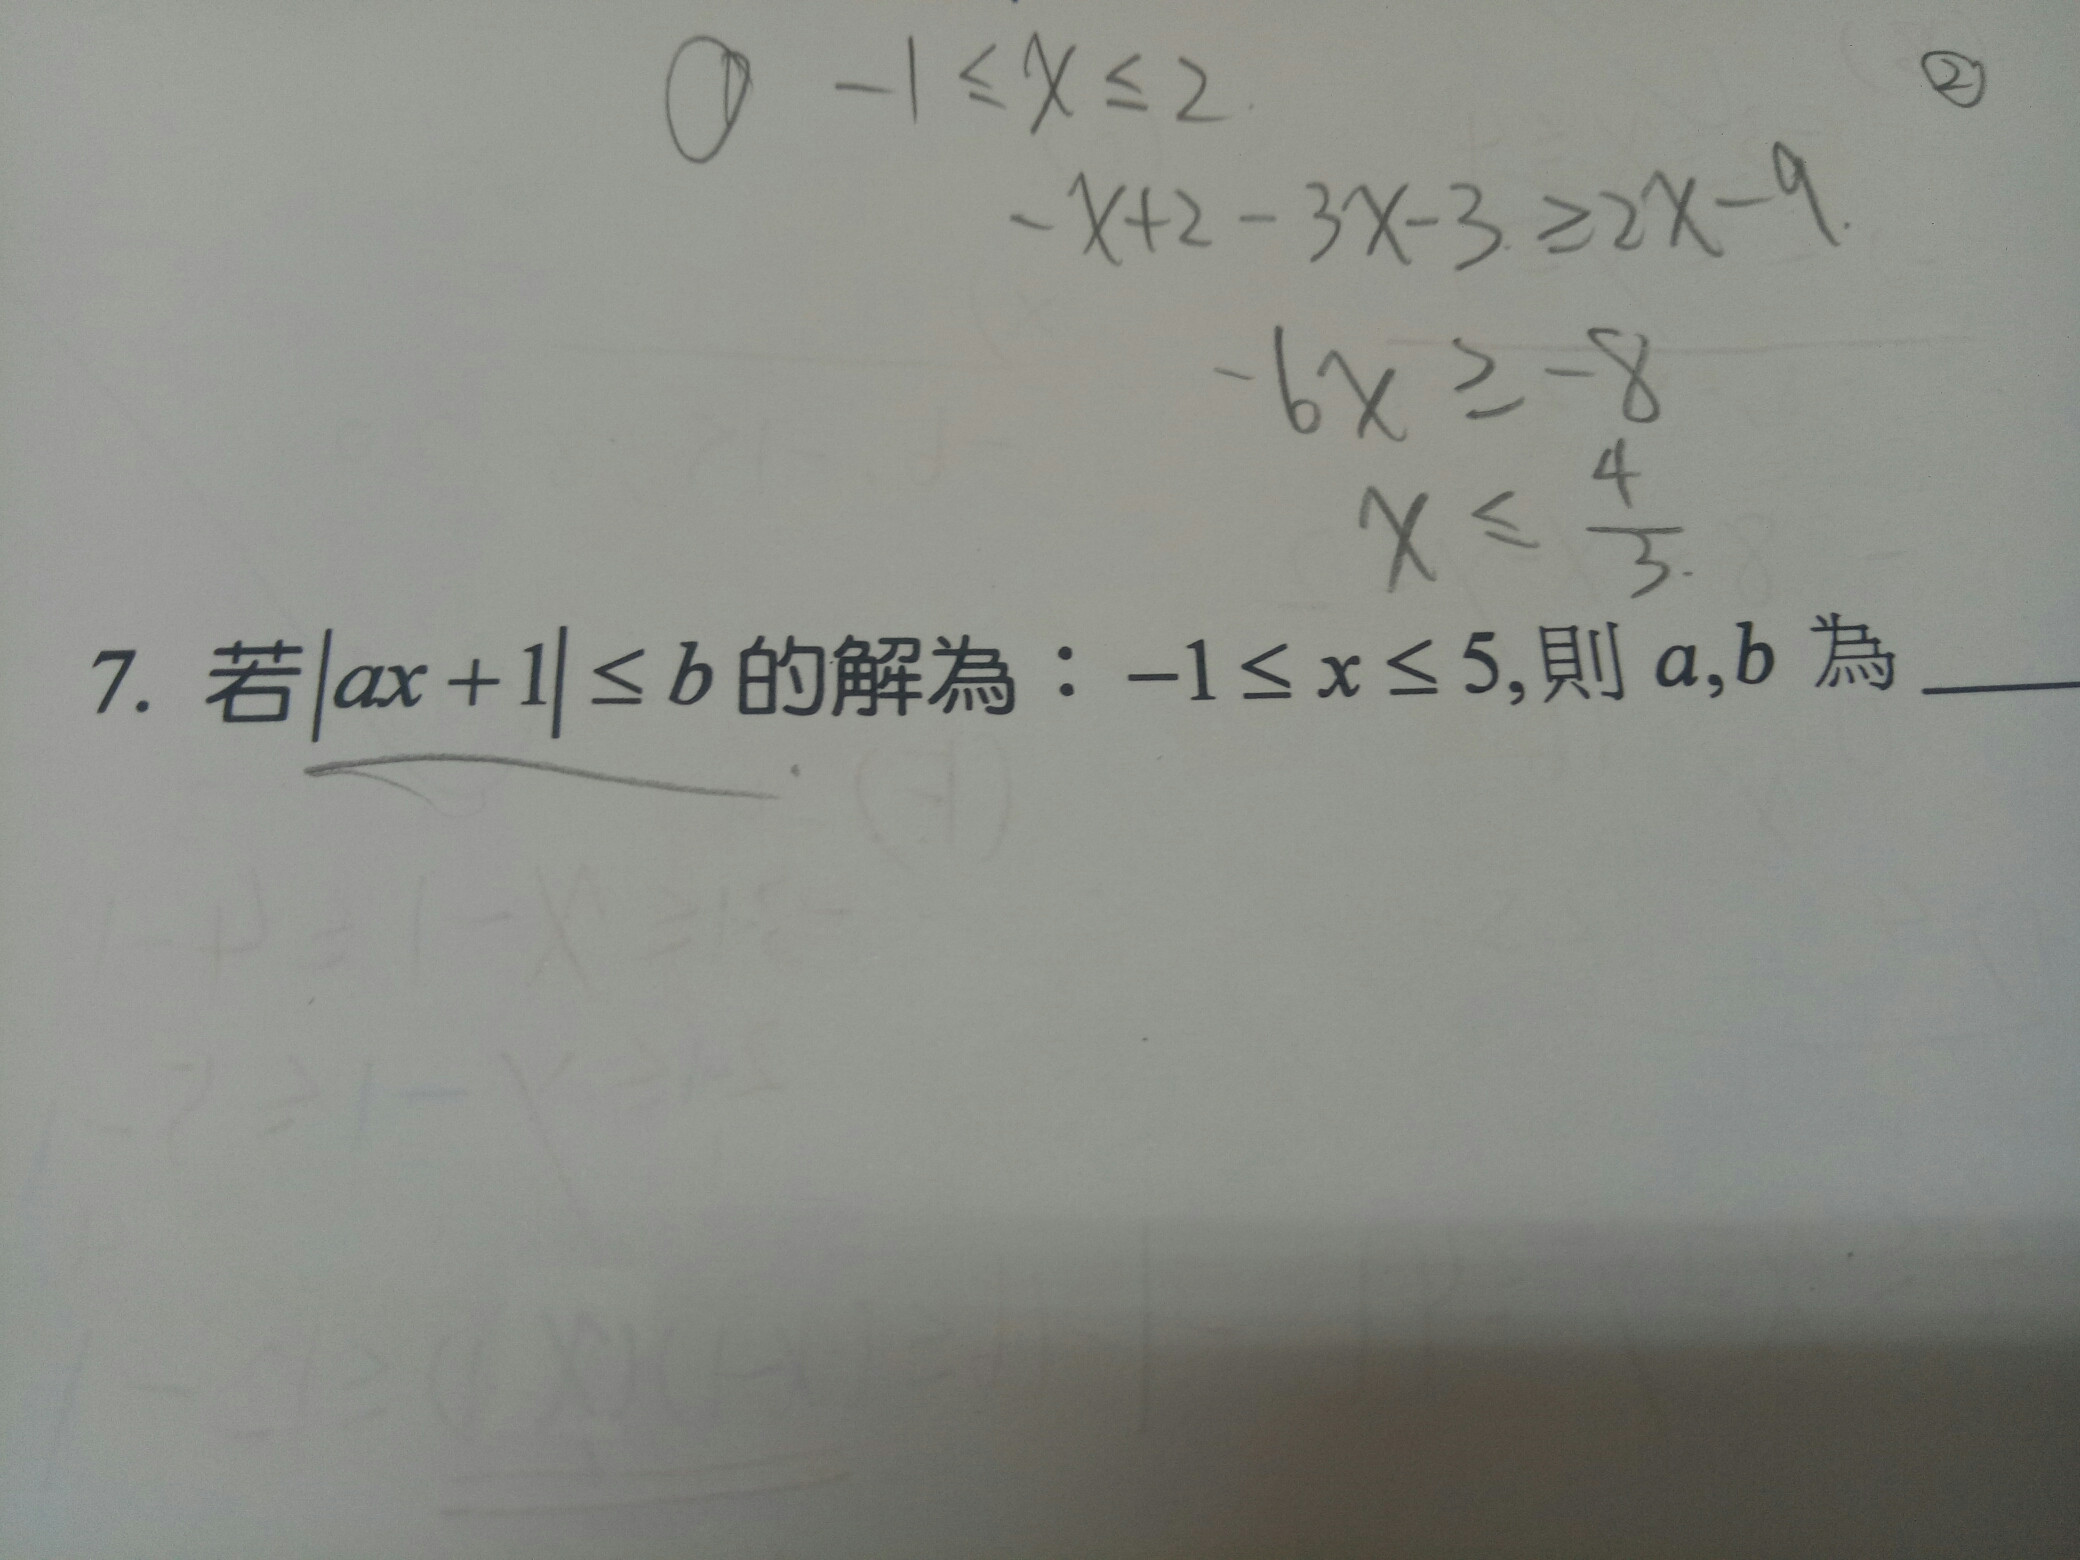 ① -1 ≤ x ≤ 2 ②
-x+2-3x-3 ≥ 2x-9
-6x ≥ -8
x ≤ 4/3
7. 若|ax+1| ≤ b 的解為：-1 ≤ x ≤ 5, 則 a,b 為____